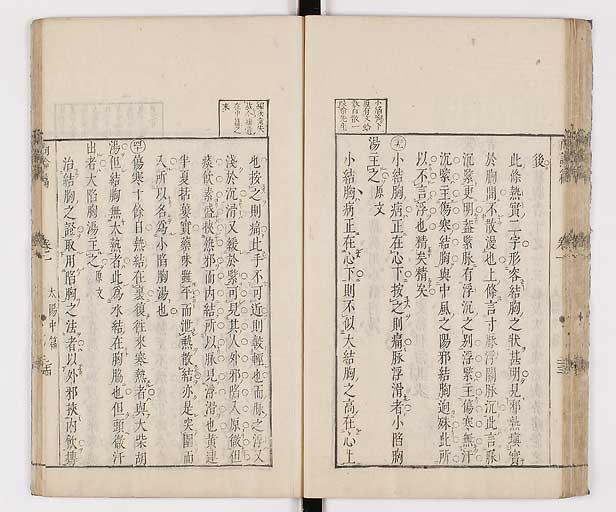 後
此條熱實二字形容結胸之狀甚明見邪熱塡實
於胸間不散漫也上條言寸脉浮關脉沉此言脉
沉緊更明葢緊脉有浮沉之別浮緊主傷寒無汗
沉緊主傷寒結胸與中風之陽邪結胸迥殊此所
以不言浮也精矣精矣
小結胸病正在心下按之則痛脉浮滑者小陷胸
湯主之 原文
小結胸病正在心下則不似大結胸之高在心上
也按之則痛比手不可近則較輕也而脉之浮又
淺於沉滑又緩於緊可見其人外邪陷入原微但
痰飲素盛挾熱邪而內結所以脉見浮滑也黃連
半夏栝蔞實藥味雖平而泄熱散結亦是突圍而
入所以名爲小陷胸湯也
傷寒十餘日熱結在裏復往來寒熱者與大柴胡
湯但結胸無大熱者此爲水結在胸脇也但頭微汗
出者大陷胸湯主之 原文
治結胸之證取用陷胸之法者以外邪挾內飲摶
太陽中篇